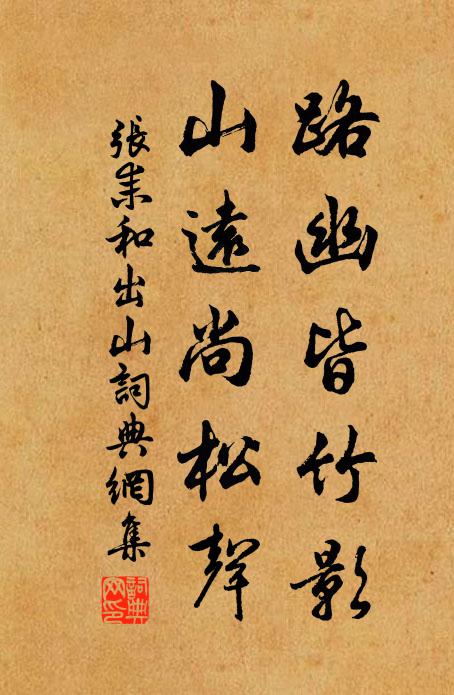 路幽皆竹影
山遠尚松聲
張耒和出山詞典網集
詞典
網印